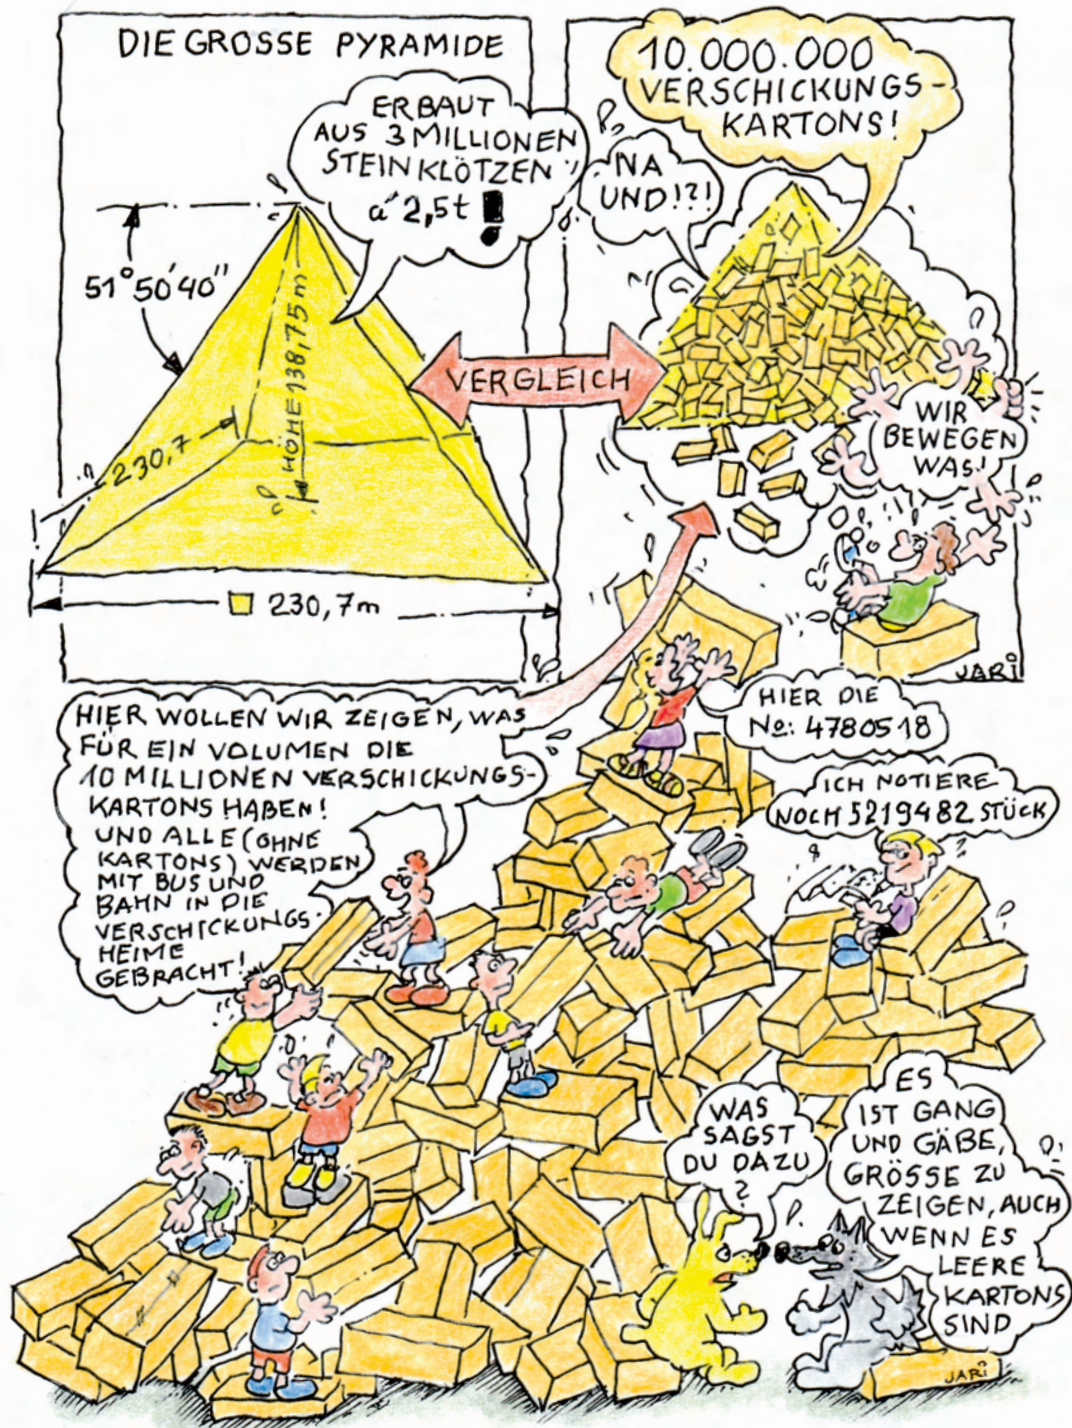 DIE GROSSE PYRAMIDE
ERBAUT
AUS 3 MILLIONEN
STEINKLÖTZEN
á 2,5t !
51° 50' 40"
HÖHE 138,75 m
230,7
230,7 m
VERGLEICH
10.000.000
VERSCHICKUNGS-
KARTONS!
NA
UND!?!
WIR
BEWEGEN
WAS!
JARI
HIER WOLLEN WIR ZEIGEN, WAS
FÜR EIN VOLUMEN DIE
10 MILLIONEN VERSCHICKUNGS-
KARTONS HABEN!
UND ALLE (OHNE
KARTONS) WERDEN
MIT BUS UND
BAHN IN DIE
VERSCHICKUNGS-
HEIME
GEBRACHT!
HIER DIE
No: 4780518
ICH NOTIERE
NOCH 5219482 STÜCK
WAS
SAGST
DU DAZU
?
ES
IST GANG
UND GÄBE,
GRÖSSE ZU
ZEIGEN, AUCH
WENN ES
LEERE
KARTONS
SIND
JARI